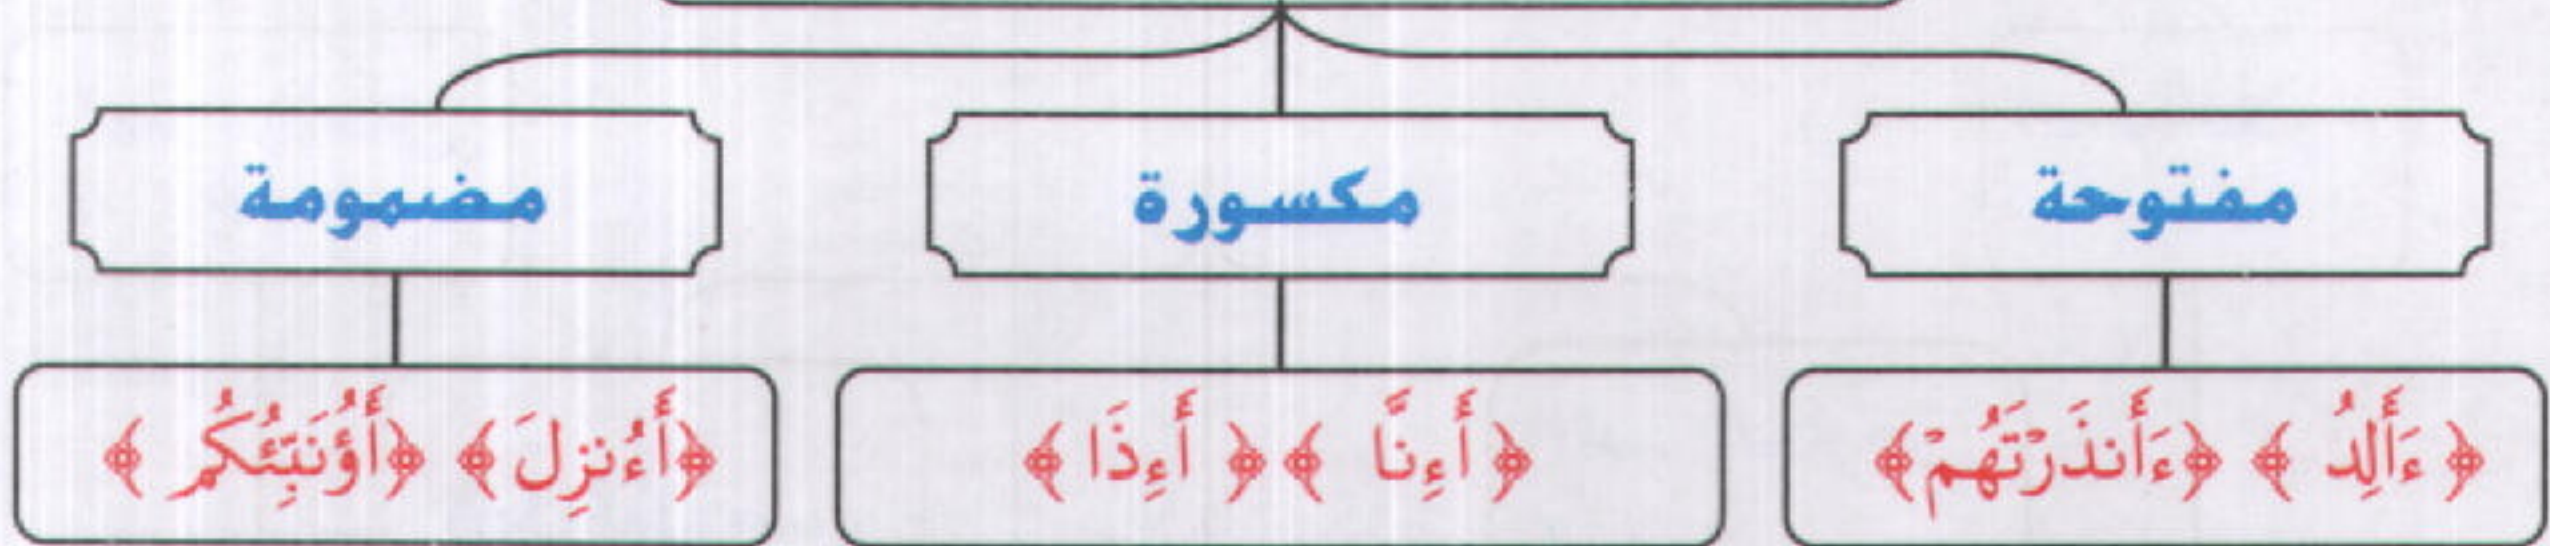 مفتوحة
مكسورة
مضمومة
﴿ءَأَلِدُ﴾ ﴿ءَأَنذَرْتَهُمْ﴾
﴿أَءِنَّا﴾ ﴿أَءِذَا﴾
﴿أَءُنزِلَ﴾ ﴿أَؤُنَبِّئُكُم﴾